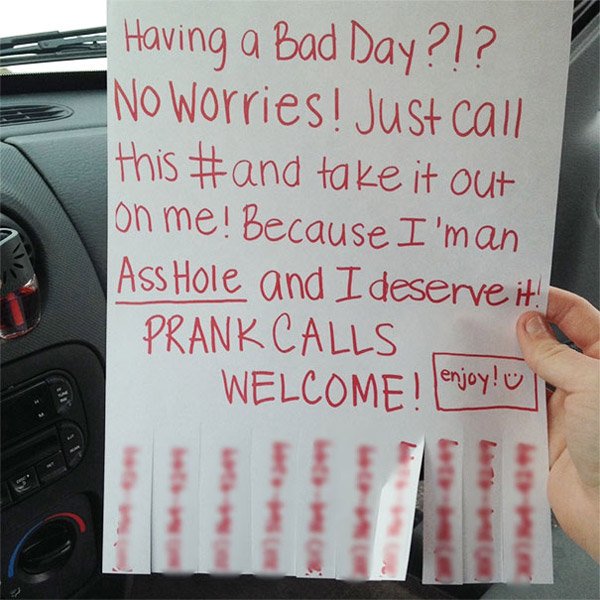 Having a Bad Day?!?
No Worries! Just call
this # and take it out
on me! Because I'm an
AssHole and I deserve it!
PRANK CALLS
WELCOME!
enjoy!